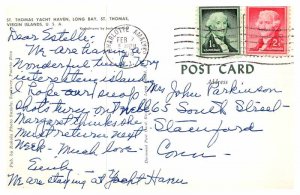 ST. THOMAS YACHT HAVEN, LONG BAY, ST. THOMAS,
VIRGIN ISLANDS, U. S. A.
Dear Estelle,
We are having a
wonderful time, very
interesting island,
I hope our
shots turn out well.
Margaret thinks she
must return next
week - Much love -
Emily
We are staying at Yacht Haven
CHARLOTTE AMALIE
FEB
1¢
2¢
POST CARD
Address
Mrs John Parkinson
65 South Street -
Stamford
Conn -